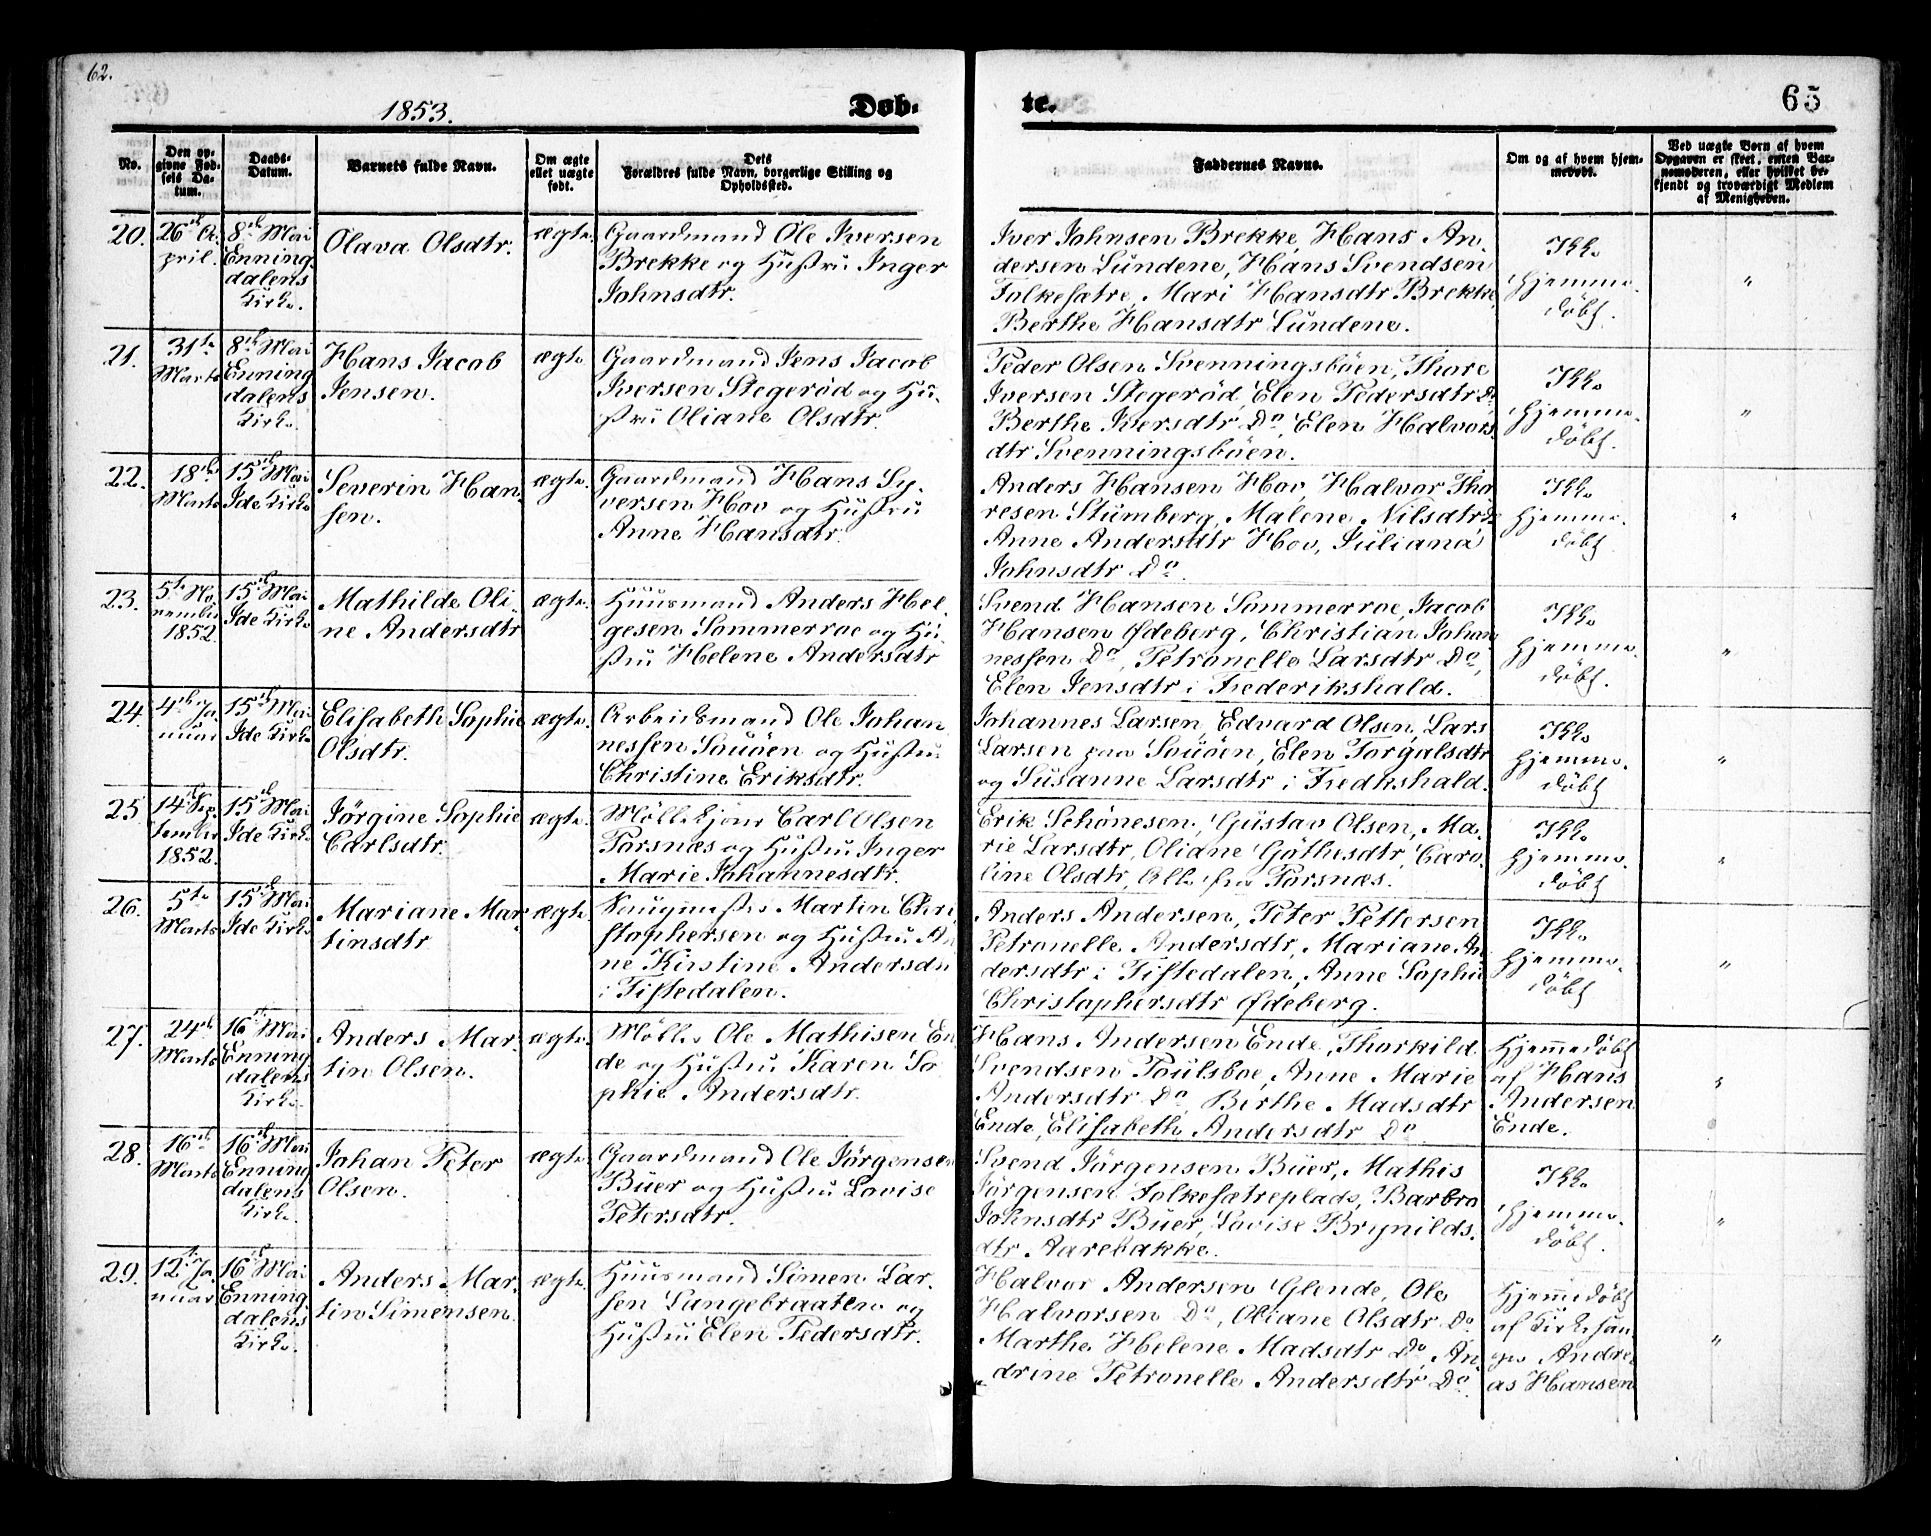 62.
1853.
Døb-
te.
65
No.
Den op-
givne Fød-
sels Da-
tum.
Daabs-
Datum.
Barnets fulde Navn.
Om ægte
ellet uægte
født.
Dets
Forældres fulde Navn, borgerlige Stilling og
Opholdssted.
Faddernes Navne.
Om og af hvem hjem-
medøbt.
Ved uægte Børn af hvem
Opgaven er skeet, enten Bar-
nemoderen, eller hvilket be-
kjendt og troværdigt Medlem
af Menigheden.
20.
26de A-
pril.
8de Mai
Enning
dalens
Kirke.
Olava Olsdtr.
ægte.
Gaardmand Ole Iversen
Brekke og Hustru Inger
Johnsdtr.
Iver Johnsen Brekke, Hans An-
dersen Lundene, Hans Svendsen
Folkesætre, Mari Hansdtr Brekke,
Berthe Hansdtr Lundene.
Ikke
hjemme-
døbt.
"
21.
31te
Marts
8de Mai
Enning
dalens
Kirke.
Hans Jacob
Jensen.
ægte
Gaardmand Jens Jacob
Iversen Stegerød og Hu-
stru Oliane Olsdtr.
Peder Olsen Svenningsbøen, Thore
Iversen Stegerød, Elen Pedersdtr Do
Berthe Iversdtr Do, Elen Halvors
dtr Svenningsbøen.
Ikke
hjemme-
døbt.
"
22.
18de
Marts
15de Mai
Ide Kirke
Severin Han-
sen.
ægte.
Gaardmand Hans Sy-
versen Hov og Hustru
Anne Hansdtr.
Anders Hansen Hov, Halvor Tho-
resen Stumberg, Malene Nilsdtr Do
Anne Andersdtr Hov, Juliana
Johnsdtr Do.
Ikke
hjemme-
døbt.
"
23.
5te No-
vember
1852.
15de Mai
Ide Kirke
Mathilde Oli-
ne Andersdtr
ægte.
Huusmand Anders Hel-
gesen Sommerroe og Hu-
stru Helene Andersdtr
Svend Hansen Sommerroe, Jacob
Hansen Ødeberg, Christian Johan
nessen Do, Petronelle Larsdtr Do,
Elen Jensdtr i Frederikshald.
Ikke
hjemme-
døbt.
"
24.
4de Ja-
nuar
15de Mai
Ide Kirke
Elisabeth Sophie
Olsdtr.
ægte.
Arbeidsmand Ole Johan
nessen Sauøen og Hustru
Christine Eriksdtr.
Johannes Larsen, Edvard Olsen, Lars
Larsen paa Sauøen, Elen Torgalsdtr
og Susanne Larsdtr i Fredrikshald.
Ikke
hjemme-
døbt
"
25
14de Sep-
tember
1852.
15de Mai
Ide Kirke
Jørgine Sophie
Carlsdtr.
ægte.
Møllekjører Carl Olsen
Torsnæs og Hustru Inger
Marie Johannesdtr.
Erik Schønesen, Gustav Olsen, Ma-
rie Larsdtr, Oliane Gøthesdtr, Caro-
line Olsdtr, Alle fra Torsnæs.
Ikke
hjemme-
døbt
"
26.
5te
Marts
15de Mai
Ide Kirke
Mariane Mar
tinsdtr
ægte.
Saugmester Martin Chri-
stophersen og Hustru An
ne Kirstine Andersdtr
i Tistedalen.
Anders Andersen, Peter Pettersen
Petronelle Andersdtr, Mariane An
dersdtr i Tistedalen, Anne Sophie
Christophersdtr Ødeberg.
Ikke
hjemme-
døbt
"
27.
24de
Marts
16de Mai
Enning
dalens
Kirke.
Anders Mar-
tin Olsen.
ægte.
Møller Ole Mathisen En
de og Hustru Karen So
phie Andersdtr.
Hans Andersen Ende, Thorkild
Svendsen Poulsboe, Anne Marie
Andersdtr Do, Birthe Madsdtr
Ende, Elisabeth Andersdtr Do
Hjemmedøbt
af Hans
Andersen
Ende.
"
28.
16de
Marts
16de Mai
Enning
dalens
Kirke.
Johan Peter
Olsen.
ægte.
Gaardmand Ole Jørgensen
Buer og Hustru Lovise
Petersdtr.
Svend Jørgensen Buer, Mathis
Jørgensen Folkesætreplads, Barbro
Johnsdtr Buer, Lovise Brynilds-
dtr Aarebakke.
Ikke
hjemme-
døbt.
"
29.
12te Ja-
nuar
16de Mai
Enning-
dalens
Kirke.
Anders Mar-
tin Simensen.
ægte.
Huusmand Simen Lar-
sen Langebraaten og
Hustru Elen Pedersdtr.
Halvor Andersen Glende, Ole
Halvorsen Do, Oliane Olsdtr Do
Marthe Helene Madsdtr Do, An-
drine Petronelle Andersdtr Do.
Hjemmedøbt
af Kirkesan-
ger Andre-
as Hansen
"